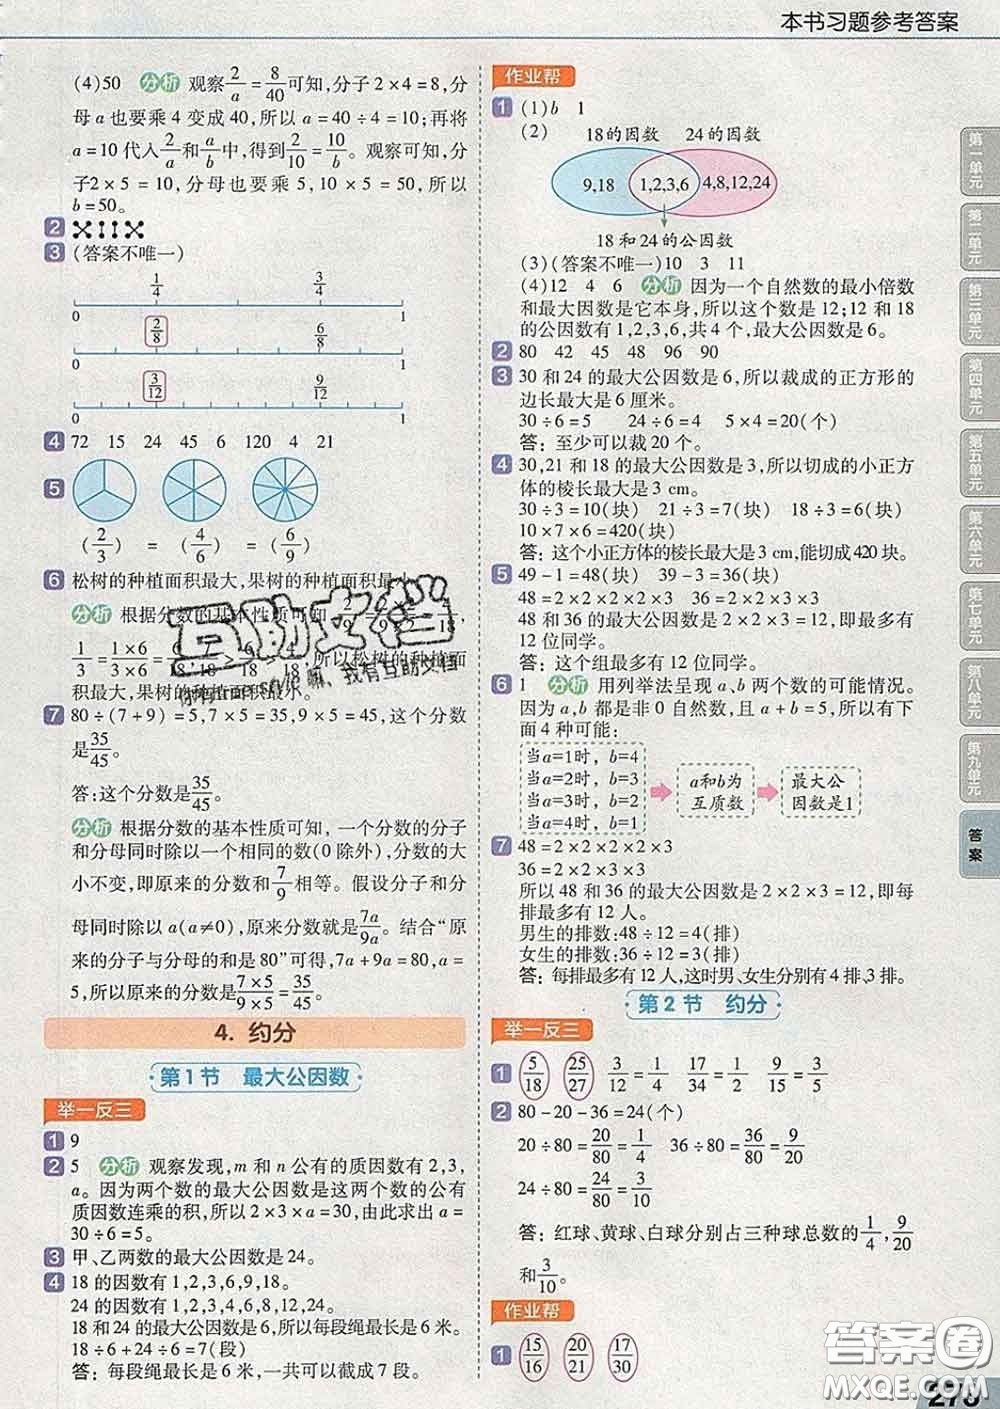 本书习题参考答案
(4)50 分析 观察2/a=8/40可知,分子2×4=8,分
母a也要乘4变成40,所以a=40÷4=10;再将
a=10代入2/a和a/b中,得到2/10=10/b。观察可知,分
子2×5=10,分母也要乘5,10×5=50,所以
b=50。
2
3 (答案不唯一)
1/4 3/4
0 1
2/8 6/8
0 1
3/12 9/12
0 1
4 72 15 24 45 6 120 4 21
5
(2/3) = (4/6) = (6/9)
6 松树的种植面积最大,果树的种植面积最小。
分析 根据分数的基本性质可知
1/3=1×6/3×6=6/18,
所以松树的种植面
积最大,果树的种植面积最小。
7 80÷(7+9)=5,7×5=35,9×5=45,这个分数
是35/45。
答:这个分数是35/45。
分析 根据分数的基本性质可知,一个分数的分子
和分母同时除以一个相同的数(0除外),分数的大
小不变,即原来的分数和7/9相等。假设分子和分
母同时除以a(a≠0),原来分数就是7a/9a。结合“原
来的分子与分母的和是80”可得,7a+9a=80,a=
5,所以原来的分数是7×5/9×5=35/45。
4. 约分
第1节 最大公因数
举一反三
1 9
2 5 分析 观察发现,m和n公有的质因数有2,3,
a。因为两个数的最大公因数是这两个数的公有
质因数连乘的积,所以2×3×a=30,由此求出a=
30÷6=5。
3 甲、乙两数的最大公因数是24。
4 18的因数有1,2,3,6,9,18。
24的因数有1,2,3,4,6,8,12,24。
18和24的最大公因数是6,所以每段绳最长是6米。
18÷6+24÷6=7(段)
答:每段绳最长是6米,一共可以截成7段。
作业帮
1 (1)b 1
(2) 18的因数 24的因数
9,18 1,2,3,6 4,8,12,24
18和24的公因数
(3)(答案不唯一)10 3 11
(4)12 4 6 分析 因为一个自然数的最小倍数
和最大因数是它本身,所以这个数是12;12和18
的公因数有1,2,3,6,共4个,最大公因数是6。
2 80 42 45 48 96 90
3 30和24的最大公因数是6,所以裁成的正方形的
边长最大是6厘米。
30÷6=5 24÷6=4 5×4=20(个)
答:至少可以裁20个。
4 30,21和18的最大公因数是3,所以切成的小正方
体的棱长最大是3 cm。
30÷3=10(块) 21÷3=7(块) 18÷3=6(块)
10×7×6=420(块)
答:这个小正方体的棱长最大是3 cm,能切成420块。
5 49-1=48(块) 39-3=36(块)
48=2×2×2×2×3 36=2×2×3×3
48和36的最大公因数是2×2×3=12,即最多有
12位同学。
答:这个组最多有12位同学。
6 1 分析 用列举法呈现a、b两个数的可能情况。
因为a,b都是非0自然数,且a+b=5,所以有下
面4种可能:
当a=1时,b=4
当a=2时,b=3
当a=3时,b=2
当a=4时,b=1
a和b为
互质数
最大公
因数是1
7 48=2×2×2×2×3
36=2×2×3×3
所以48和36的最大公因数是2×2×3=12,即每
排最多有12人。
男生的排数:48÷12=4(排)
女生的排数:36÷12=3(排)
答:每排最多有12人,这时男、女生分别有4排、3排。
第2节 约分
举一反三
1 5/18 25/27 3/12=1/4 17/34=1/2 9/15=3/5
2 80-20-36=24(个)
20÷80=20/80=1/4 36÷80=36/80=9/20
24÷80=24/80=3/10
答:红球、黄球、白球分别占三种球总数的1/4,9/20
和3/10。
作业帮
1 15/16 20/21 17/30
第一单元
第二单元
第三单元
第四单元
第五单元
第六单元
第七单元
第八单元
第九单元
答案
互助文档
答案圈
MXQE.COM